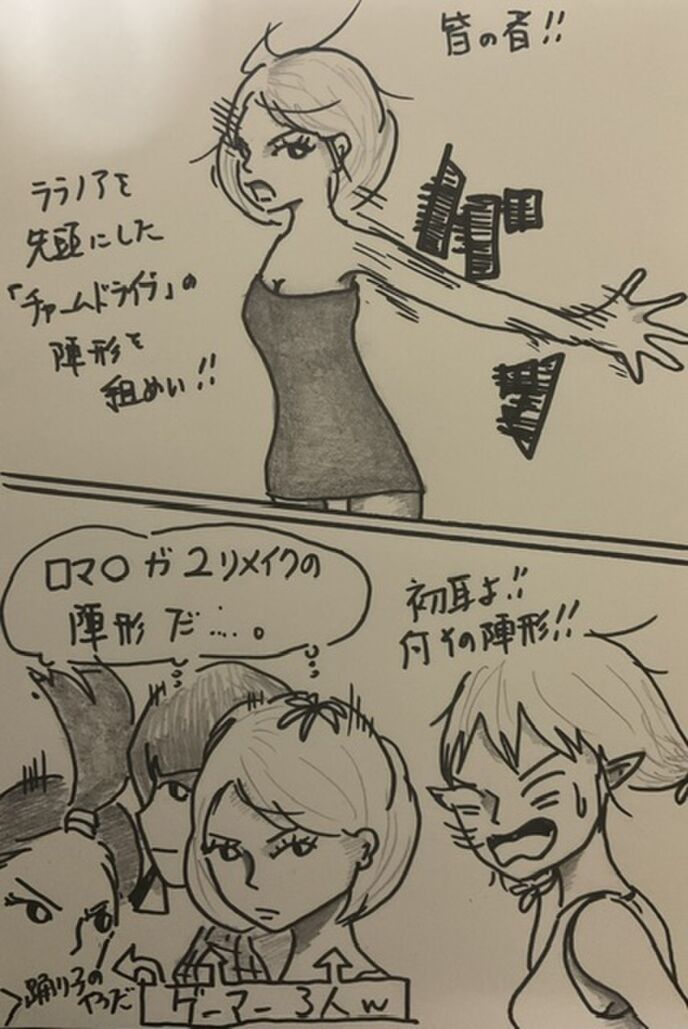 皆の者!!
ララノアを
先頭にした
「チャームドライブ」の
陣形を
組めい!!
ロマ〇ガ2リメイクの
陣形だ....。
初耳よ!!
何その陣形!!
踊り子の
やつだ
ゲーマー3人w